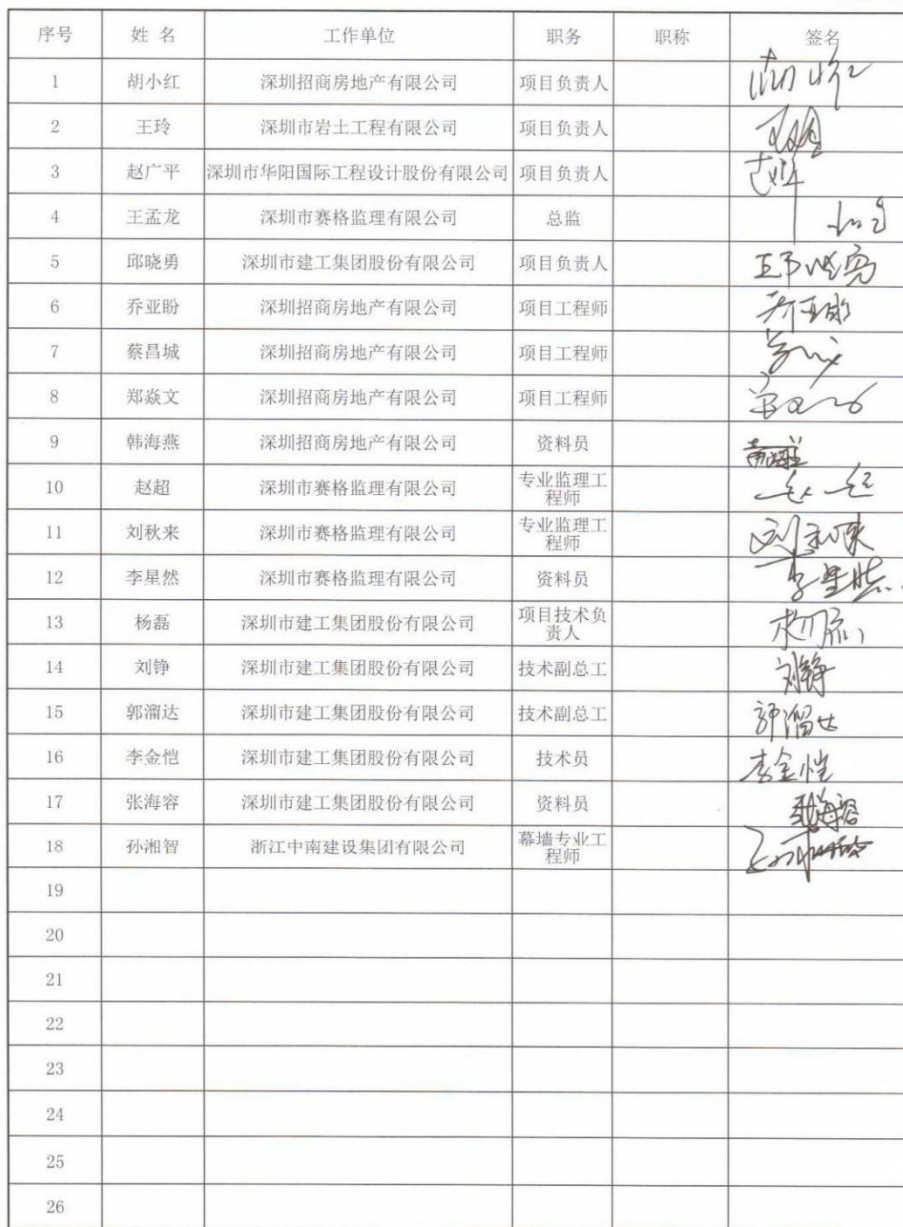 序号 姓名 工作单位 职务 职称 签名
1 胡小红 深圳招商房地产有限公司 项目负责人
2 王玲 深圳市岩土工程有限公司 项目负责人
3 赵广平 深圳市华阳国际工程设计股份有限公司 项目负责人
4 王孟龙 深圳市赛格监理有限公司 总监
5 邱晓勇 深圳市建工集团股份有限公司 项目负责人 邱晓勇
6 乔亚盼 深圳招商房地产有限公司 项目工程师 乔亚盼
7 蔡昌城 深圳招商房地产有限公司 项目工程师
8 郑焱文 深圳招商房地产有限公司 项目工程师
9 韩海燕 深圳招商房地产有限公司 资料员
10 赵超 深圳市赛格监理有限公司 专业监理工
程师
11 刘秋来 深圳市赛格监理有限公司 专业监理工
程师 刘秋来
12 李星然 深圳市赛格监理有限公司 资料员 李星然
13 杨磊 深圳市建工集团股份有限公司 项目技术负
责人
14 刘铮 深圳市建工集团股份有限公司 技术副总工 刘铮
15 郭溜达 深圳市建工集团股份有限公司 技术副总工 郭溜达
16 李金恺 深圳市建工集团股份有限公司 技术员 李金恺
17 张海容 深圳市建工集团股份有限公司 资料员
18 孙湘智 浙江中南建设集团有限公司 幕墙专业工
程师
19
20
21
22
23
24
25
26